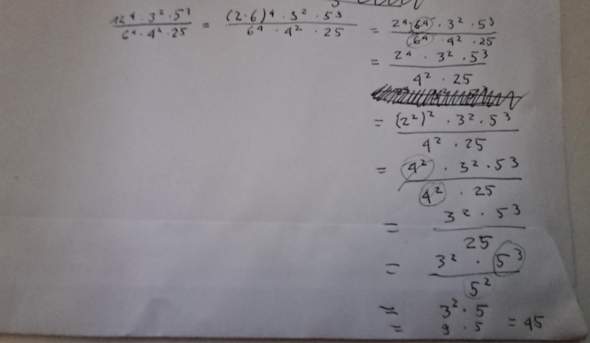 12⁴ · 3² · 5³ / 6⁴ · 4² · 25 = (2·6)⁴ · 3² · 5³ / 6⁴ · 4² · 25 = 2⁴ · 6⁴ · 3² · 5³ / 6⁴ · 4² · 25
= 2⁴ · 3² · 5³ / 4² · 25
= (2²)² · 3² · 5³ / 4² · 25
= 4² · 3² · 5³ / 4² · 25
= 3² · 5³ / 25
= 3² · 5³ / 5²
= 3² · 5
= 9 · 5 = 45